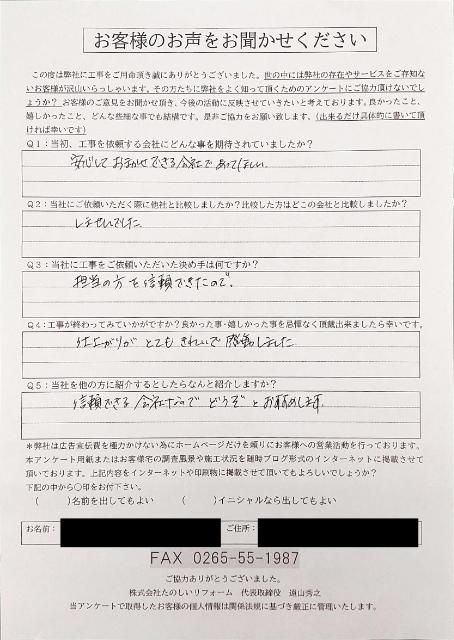 お客様のお声をお聞かせください
この度は弊社に工事をご用命頂き誠にありがとうございました。世の中には弊社の存在やサービスをご存知な
いお客様が沢山いらっしゃいます。その方たちに弊社をよく知って頂くためのアンケートにご協力頂けないでし
ょうか？お客様のご意見をお聞かせ頂き、今後の活動に反映させていきたいと考えております。良かったこと、
嬉しかったこと、どんな些細な事でも結構です。是非ご協力をお願い致します。(出来るだけ具体的に書いて頂
ければ幸いです)
Q1：当初、工事を依頼する会社にどんな事を期待されていましたか？
安心しておまかせできる会社であってほしい
Q2：当社にご依頼いただく際に他社と比較しましたか？比較した方はどこの会社と比較しましたか？
しませんでした
Q3：当社に工事をご依頼いただいた決め手は何ですか？
担当の方を信頼できたので。
Q4：工事が終わってみていかがですか？良かった事・嬉しかった事を忌憚なく頂戴出来ましたら幸いです。
仕上がりがとてもきれいで感動しました
Q5：当社を他の方に紹介するとしたらなんと紹介しますか？
信頼できる会社なのでどうぞとおすすめします。
＊弊社は広告宣伝費を極力かけない為にホームページだけを頼りにお客様への営業活動を行っております。
本アンケート用紙またはお客様宅の調査風景や施工状況を随時ブログ形式のインターネットに掲載させて
頂いております。上記内容をインターネットや印刷物に掲載させて頂いてもよろしいでしょうか？
下記の中から○印をお付下さい。
(　　)名前を出してもよい　　(　　)イニシャルなら出してもよい
お名前：　ご住所：
FAX 0265-55-1987
ご協力ありがとうございました。
株式会社たのしいリフォーム　代表取締役　遠山秀之
当アンケートで取得したお客様の個人情報は関係法規に基づき厳正に管理いたします。